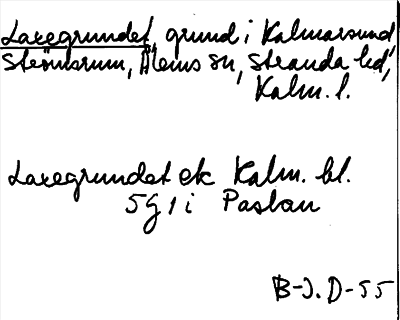 Laxegrundet, grund i Kalmarsund,
Strömsrum, Ålems sn, Stranda hd,
Kalm. l.
Laxegrundet ek Kalm. bl.
5G1i Påskan
B-J.D-55